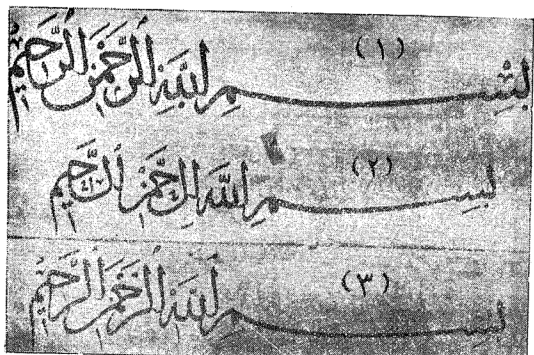 (١) بِسْمِ اللَّهِ الرَّحْمَنِ الرَّحِيمِ
(٢) بسم الله الرحمن الرحيم
(٣) بسم الله الرحمن الرحيم